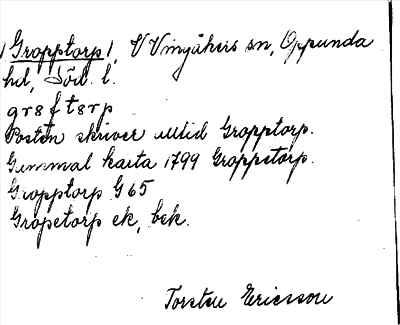 Gropptorp, V Vingåkers sn, Oppunda
hd, Söd. l.
gr8ft8rp
Posten skriver alltid Gropptorp.
Gammal karta 1799 Groppetorp.
Gropptorp G 65
Gropetorp ek, bek.
Torsten Ericsson